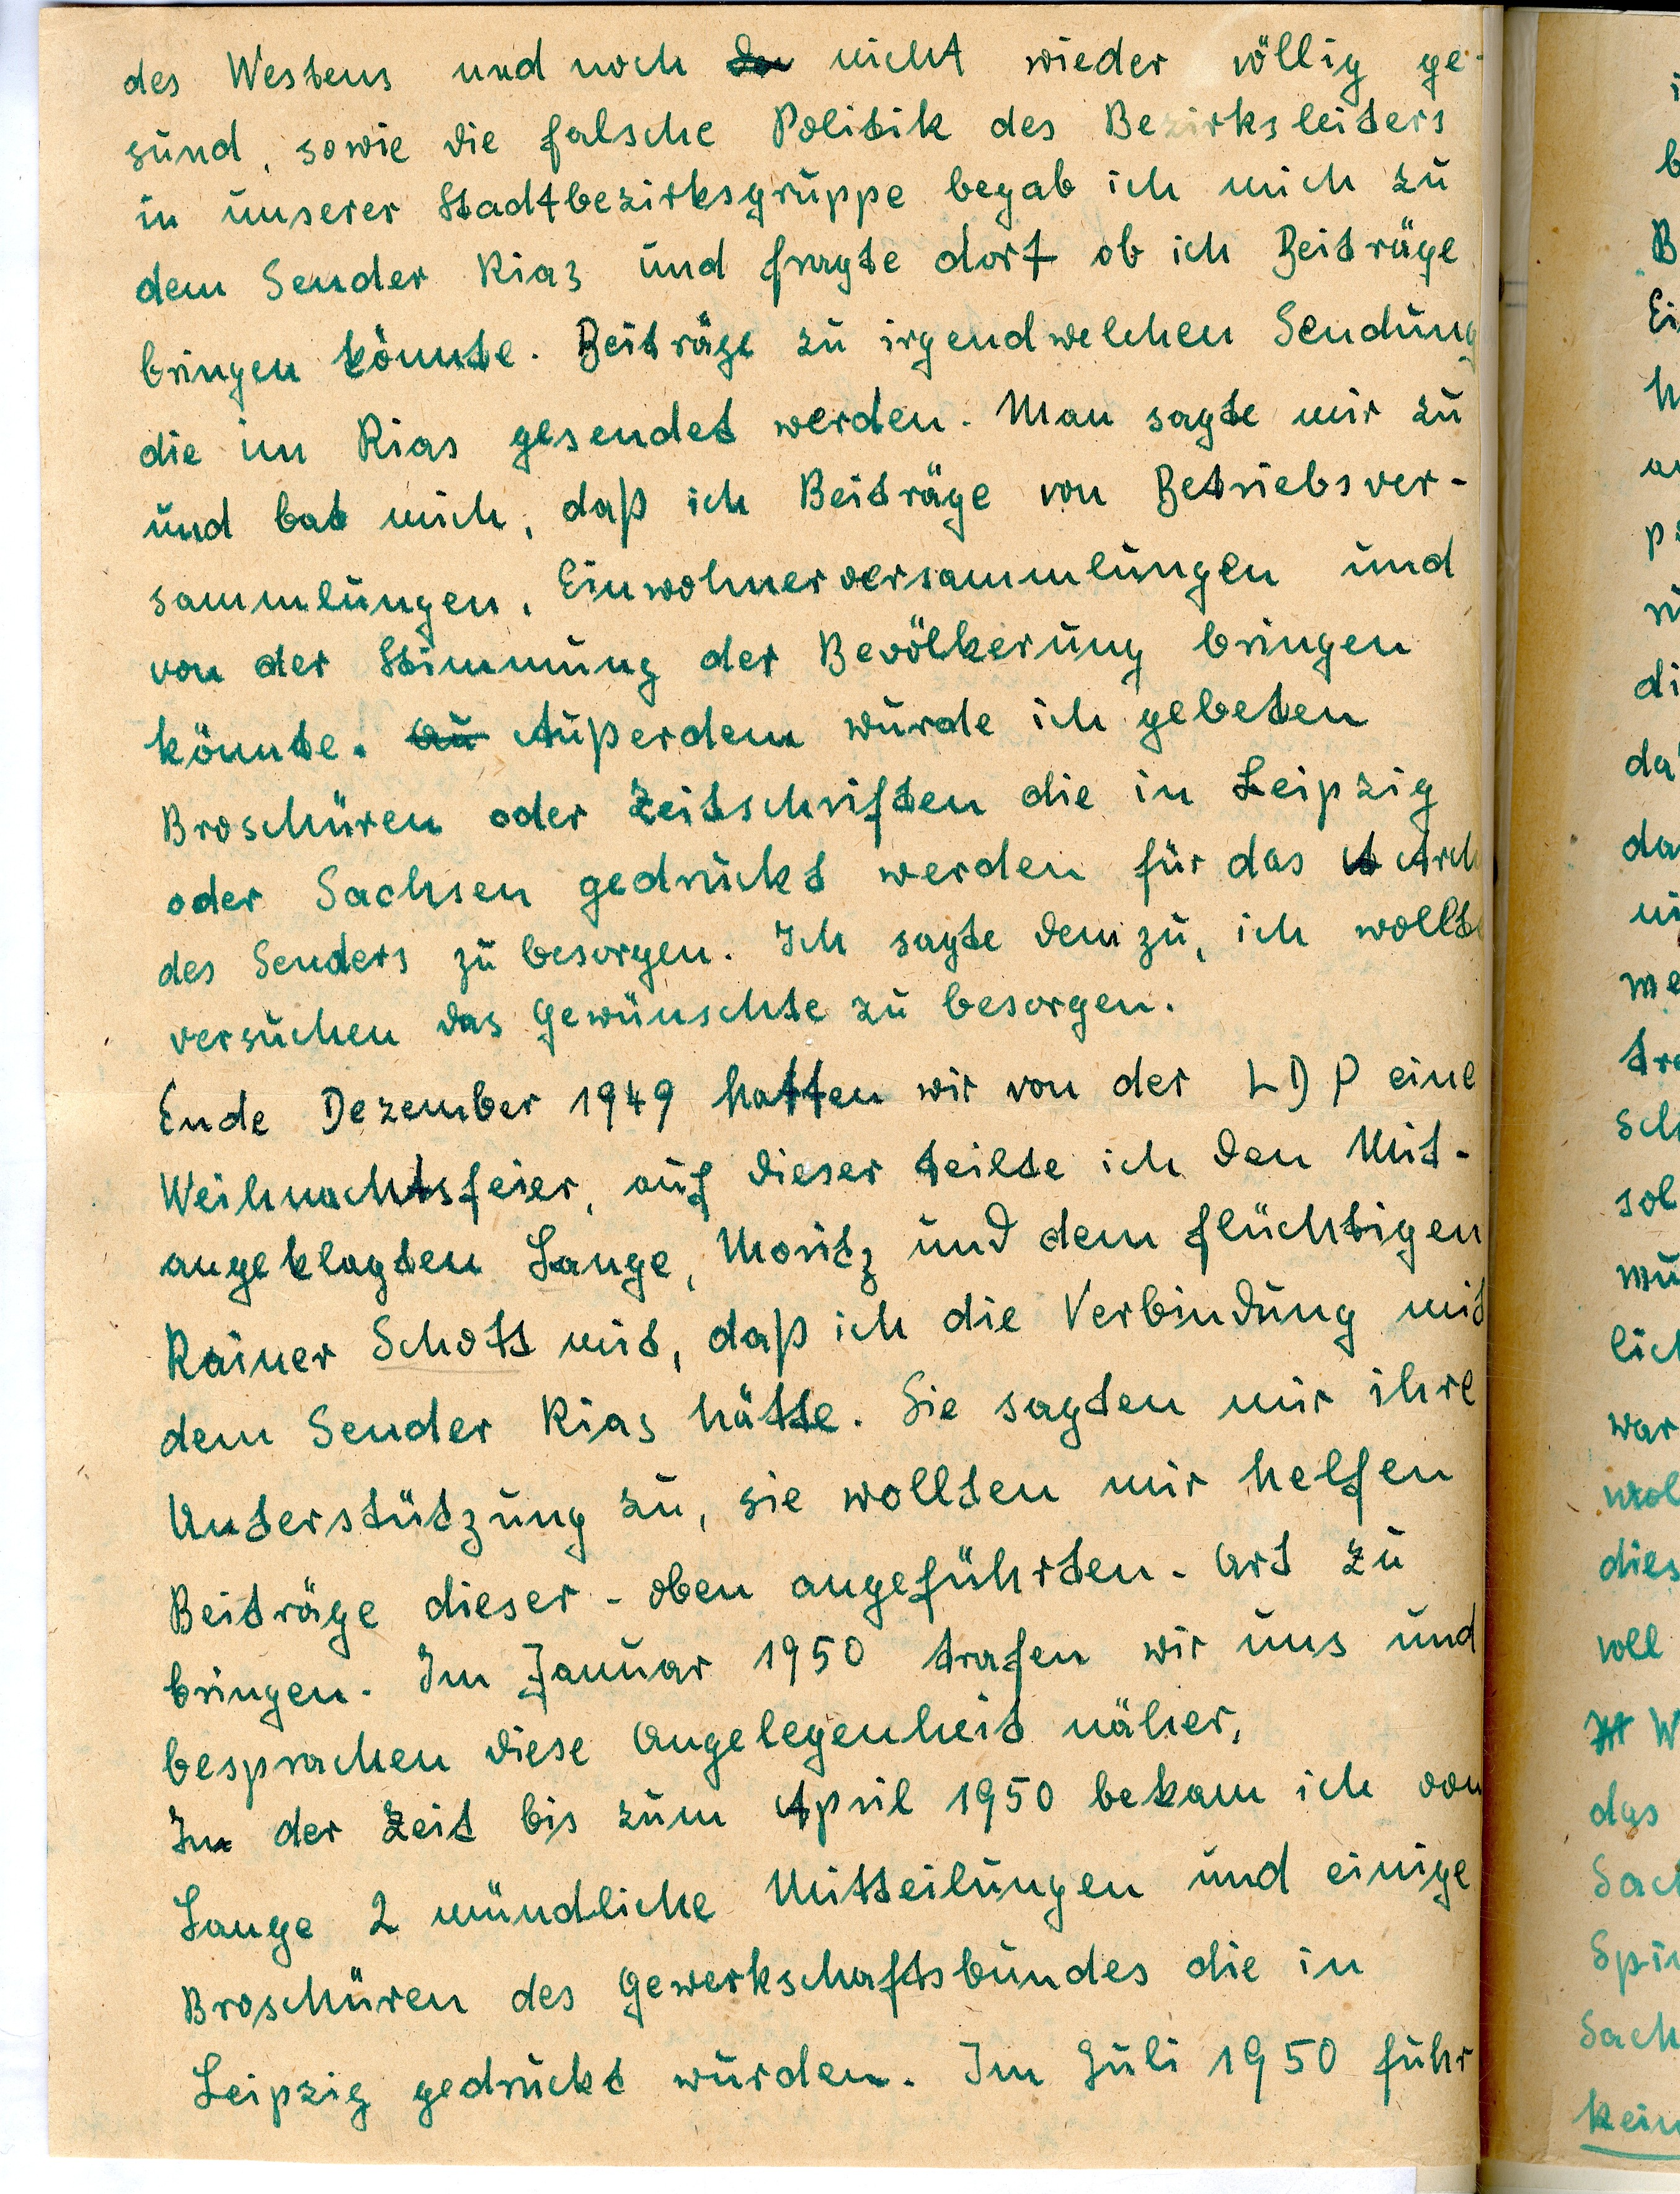 des Westens und noch nicht wieder völlig ge-
sund, sowie die falsche Politik des Bezirksleiters
in unserer Stadtbezirksgruppe begab ich mich zu
dem Sender Rias und fragte dort ob ich Beiträge
bringen könnte. Beiträge zu irgendwelchen Sendung
die im Rias gesendet werden. Man sagte mir zu
und bat mich, daß ich Beiträge von Betriebsver-
sammlungen, Einwohnerversammlungen und
von der Stimmung der Bevölkerung bringen
könnte. Au Außerdem wurde ich gebeten
Broschüren oder Zeitschriften die in Leipzig
oder Sachsen gedruckt werden für das Arch
des Senders zu besorgen. Ich sagte dem zu, ich wollte
versuchen das Gewünschte zu besorgen.
Ende Dezember 1949 hatten wir von der LDP eine
Weihnachtsfeier, auf dieser teilte ich den Mit-
angeklagten Lange, Moritz und dem flüchtigen
Rainer Schott mit, daß ich die Verbindung mit
dem Sender Rias hätte. Sie sagten mir ihre
Unterstützung zu, sie wollten mir helfen
Beiträge dieser - oben angeführten - Art zu
bringen. Im Januar 1950 trafen wir uns und
besprachen diese Angelegenheit näher.
In der Zeit bis zum April 1950 bekam ich von
Lange 2 mündliche Mitteilungen und einige
Broschüren des Gewerkschaftsbundes die in
Leipzig gedruckt wurden. Im Juli 1950 fuhr